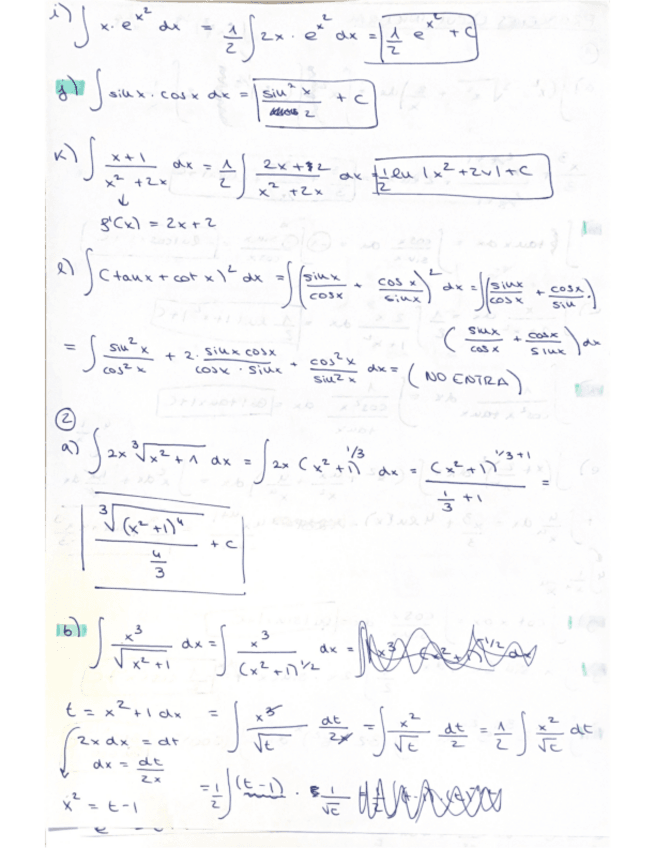 i) ∫ x·e^{x^2} dx = 1/2 ∫ 2x · e^{x^2} dx = 1/2 e^{x^2} + C
j) ∫ sin x · cos x dx = sin^2 x / 2 + C
k) ∫ (x+1)/(x^2+2x) dx = 1/2 ∫ (2x+2)/(x^2+2x) dx = 1/2 ln |x^2+2x| + C
↓
f'(x) = 2x+2
l) ∫ (tan x + cot x)^2 dx = ∫ (sin x/cos x + cos x/sin x)^2 dx = ∫ (sin x/cos x + cos x/sin ·)
(sin x/cos x + cos x/sin x) dx
= ∫ sin^2 x/cos^2 x + 2· sin x cos x/cos x · sin x + cos^2 x/sin^2 x dx = (NO ENTRA)
2
a) ∫ 2x ∛(x^2+1) dx = ∫ 2x (x^2+1)^{1/3} dx = (x^2+1)^{1/3+1} / (1/3 + 1) =
∛((x^2+1)^4) / (4/3) + C
b) ∫ x^3/√(x^2+1) dx = ∫ x^3/(x^2+1)^{1/2} dx =
t = x^2+1 dx = ∫ x^3/√t dt/2x = ∫ x^2/√t dt/2 = 1/2 ∫ x^2/√t dt
2x dx = dt
dx = dt/2x
x^2 = t-1 = 1/2 ∫ (t-1) · 1/√t